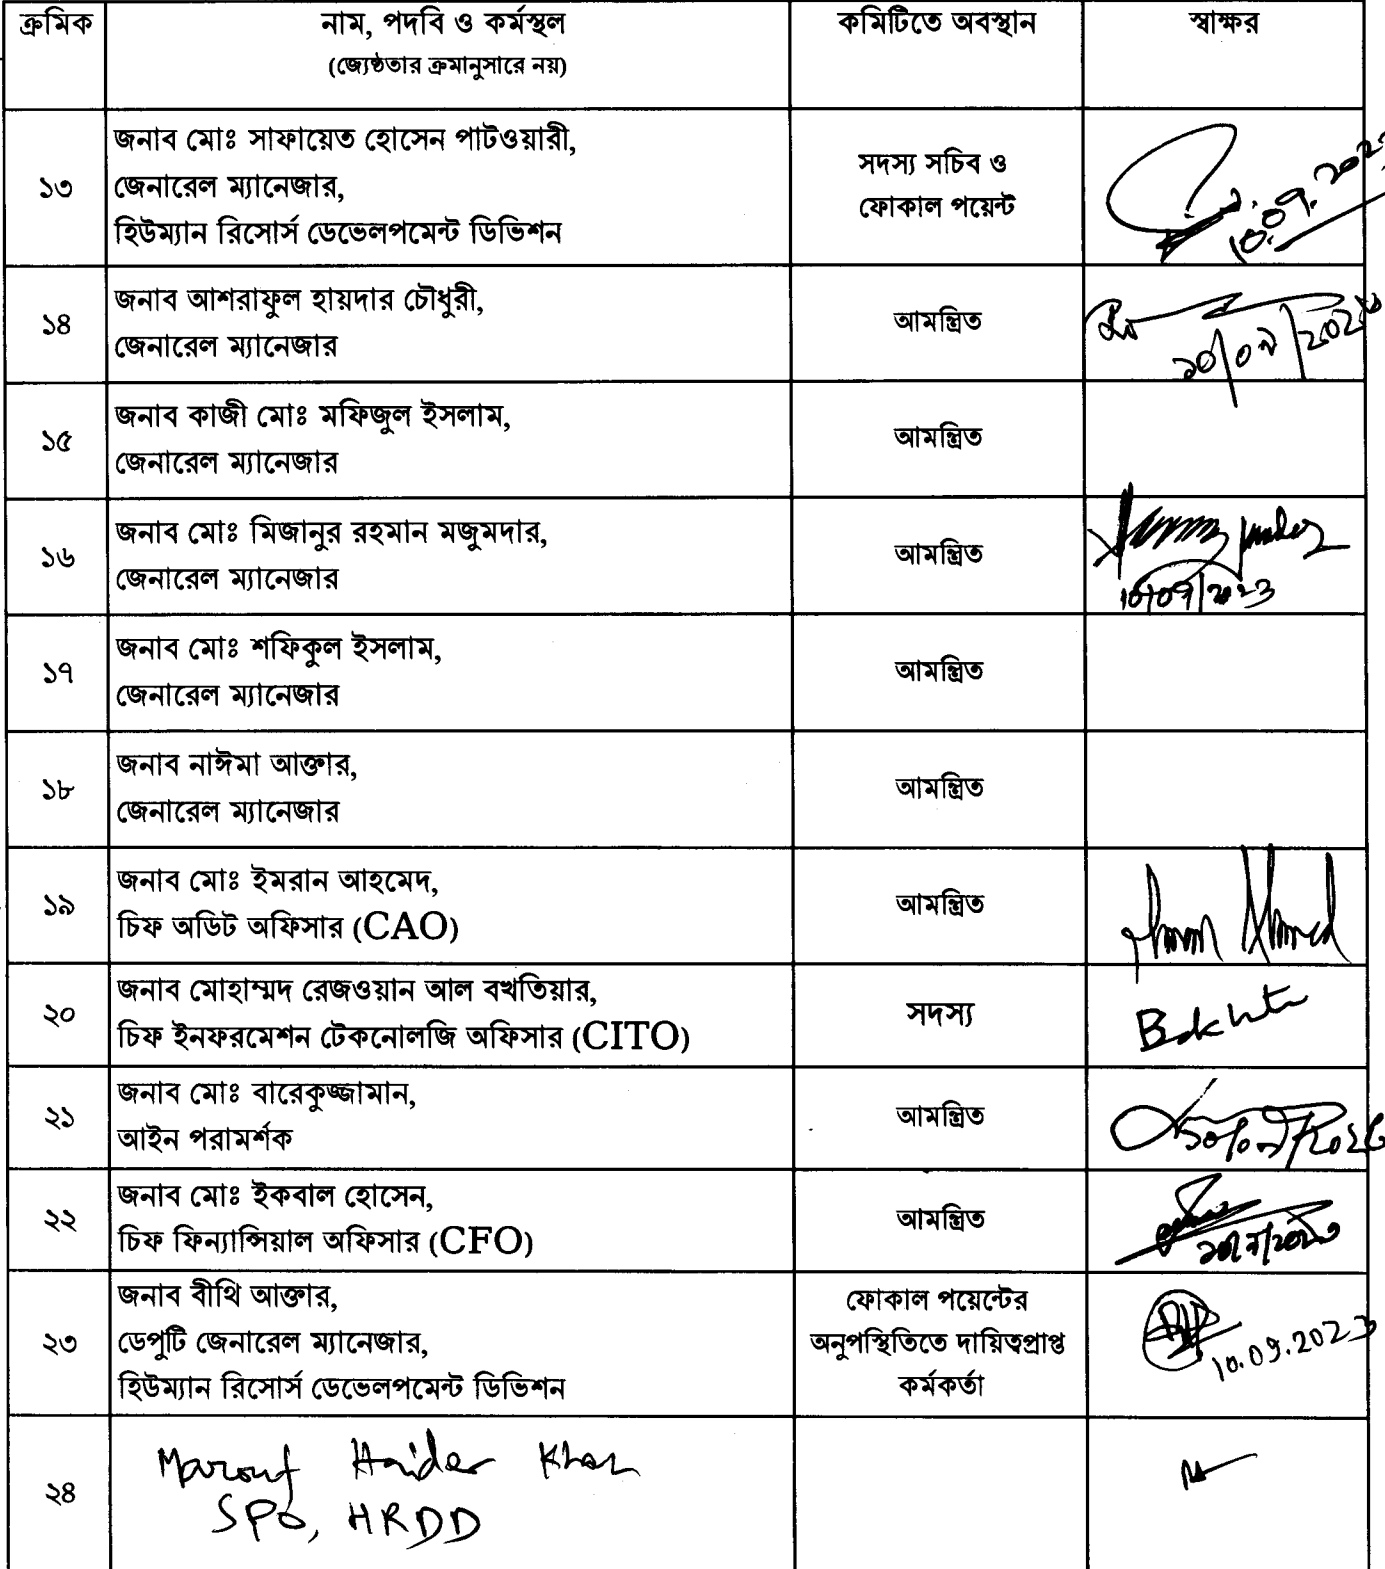 ক্রমিক
নাম, পদবি ও কর্মস্থল
(জ্যেষ্ঠতার ক্রমানুসারে নয়)
কমিটিতে অবস্থান
স্বাক্ষর
১৩
জনাব মোঃ সাফায়েত হোসেন পাটওয়ারী,
জেনারেল ম্যানেজার,
হিউম্যান রিসোর্স ডেভেলপমেন্ট ডিভিশন
সদস্য সচিব ও
ফোকাল পয়েন্ট
১৪
জনাব আশরাফুল হায়দার চৌধুরী,
জেনারেল ম্যানেজার
আমন্ত্রিত
১৫
জনাব কাজী মোঃ মফিজুল ইসলাম,
জেনারেল ম্যানেজার
আমন্ত্রিত
১৬
জনাব মোঃ মিজানুর রহমান মজুমদার,
জেনারেল ম্যানেজার
আমন্ত্রিত
10/09/2023
১৭
জনাব মোঃ শফিকুল ইসলাম,
জেনারেল ম্যানেজার
আমন্ত্রিত
১৮
জনাব নাঈমা আক্তার,
জেনারেল ম্যানেজার
আমন্ত্রিত
১৯
জনাব মোঃ ইমরান আহমেদ,
চিফ অডিট অফিসার (CAO)
আমন্ত্রিত
২০
জনাব মোহাম্মদ রেজওয়ান আল বখতিয়ার,
চিফ ইনফরমেশন টেকনোলজি অফিসার (CITO)
সদস্য
২১
জনাব মোঃ বারেকুজ্জামান,
আইন পরামর্শক
আমন্ত্রিত
২২
জনাব মোঃ ইকবাল হোসেন,
চিফ ফিন্যান্সিয়াল অফিসার (CFO)
আমন্ত্রিত
২৩
জনাব বীথি আক্তার,
ডেপুটি জেনারেল ম্যানেজার,
হিউম্যান রিসোর্স ডেভেলপমেন্ট ডিভিশন
ফোকাল পয়েন্টের
অনুপস্থিতিতে দায়িত্বপ্রাপ্ত
কর্মকর্তা
10.09.2023
২৪
Marouf Haider Khan
SPO, HRDD